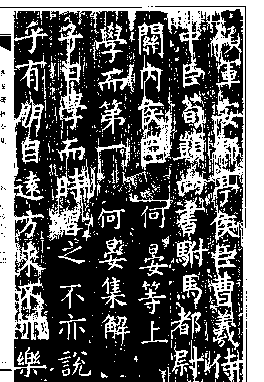 領軍安鄉亭侯臣曹羲侍
中臣荀顗尚書駙馬都尉
關內侯臣何晏等上
學而第一 何晏集解
子曰學而時習之不亦說
乎有朋自遠方來不亦樂